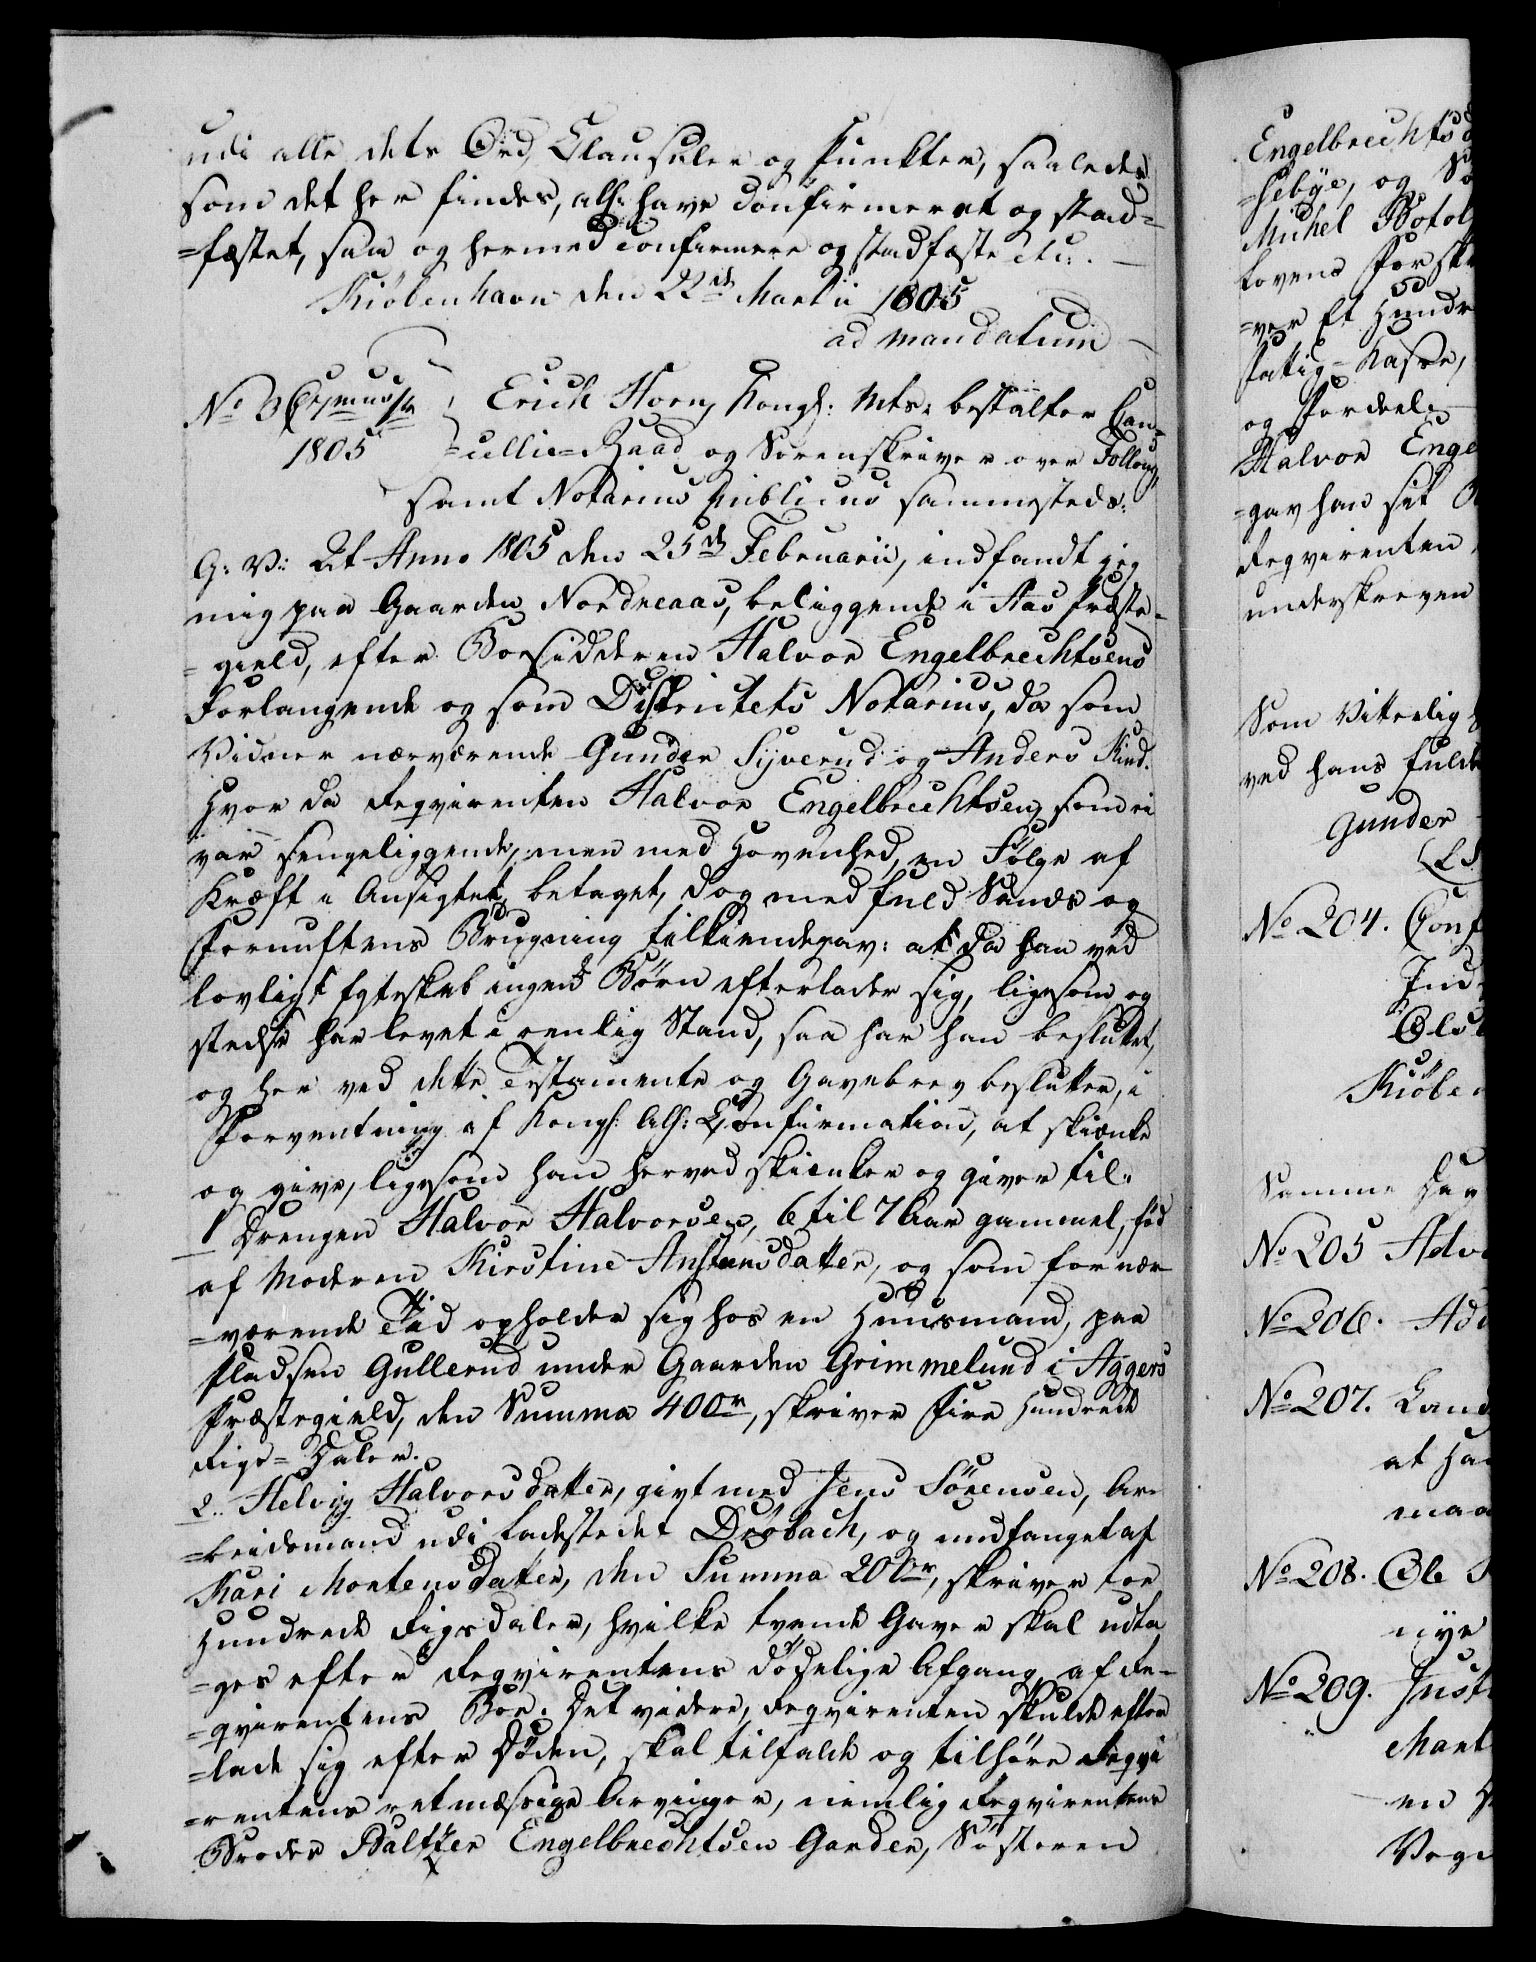 udi alle dets Ord, Clausuler og Punkter, saaledes
som det her findes, allr: have confirmeret og stad=
=fæstet, saa og hermed confirmere og stadfæste etc: —
Kiöbenhavn den 22de Martii 1805
ad mandatum
No 3
1805
Erich Horn, Kongl: Mts: bestalter Can=
=cellie=Raad og Sorenskriver over Folloug,
samt Notarius Publicus sammesteds:
G: V: At Anno 1805 den 25de Februarii, indfandt jeg
mig paa Gaarden Nordreaas, beliggende i Aas Præste=
=gield, efter Boesidderen Halvor Engelbrechtsens
Forlangende og som Districtets Notarius, da som
Vidner nærværende Gunder Syverud og Anders Rud.
Hvor da Reqvirenten Halvor Engelbrechtsen, som ei
var sengeliggende, men med Hovenhed, en Fölge af
Kræft i Ansigtet, betaget, dog med fuld Sands og
Fornuftens Brugning tilkiendegav: at da han ved
lovligt Egteskab ingen Börn efterlader sig, ligesom og
stedse har levet i eenlig Stand, saa har han besluttet,
og her ved dette Testamente og Gavebrev beslutter, i
Forventning af Kongl: Allr: Confirmation, at skienke
og give, ligesom han herved skienker og giver til:
1 Drengen Halvor Halvorsen, 6 til 7 Aar gammel, fød
af Moderen Kirstine Anstensdatter, og som for nær=
=værende Tid opholder sig hos en Huusmand, paa
Pladsen Gullerud under Gaarden Grimmelund i Aggers
Præstegield, den Summa 400r, skriver Fire Hundrede
Rigs=Daler.
2. Helvig Halvorsdatter, givt med Jens Sörensen, Ar=
=beidsmand udi Ladestedet Dröbach, og undfanget af
Kari Mortensdatter, den Summa 200r, skriver toe
Hundrede Rigsdaler, hvilke tvende Gaver skal udta
=ges efter Reqvirentens dödelige Afgang af Re=
=qvirentens Boe. Det videre, Reqvirenten skulde efter
=lade sig efter Döden, skal tilfalde og tilhöre Reqvi
=rentens retmæssige Arvinger, nemlig Reqvirentens
Broder Baltzer Engelbrechtsen Garder, Sösteren
Engelbrechtsd
=sebye, og
Michel Botol
Lovens Forsk
=ver Et Hundr
Fattig=Kasse,
og Fordeel.
Halvor Enge
=gav han sit
Reqvirenten
underskreven
Som Vitterlig
ved hans fulde
Gunder
(L.S.
No 204. Conf
Ind
Olu
Kiöben
Samme Dag
No 205 Adv
No 206. Ad
No 207. Land
at Ha
maa
No 208. Ole
nye
No 209. Just
Mart
en H
Voge